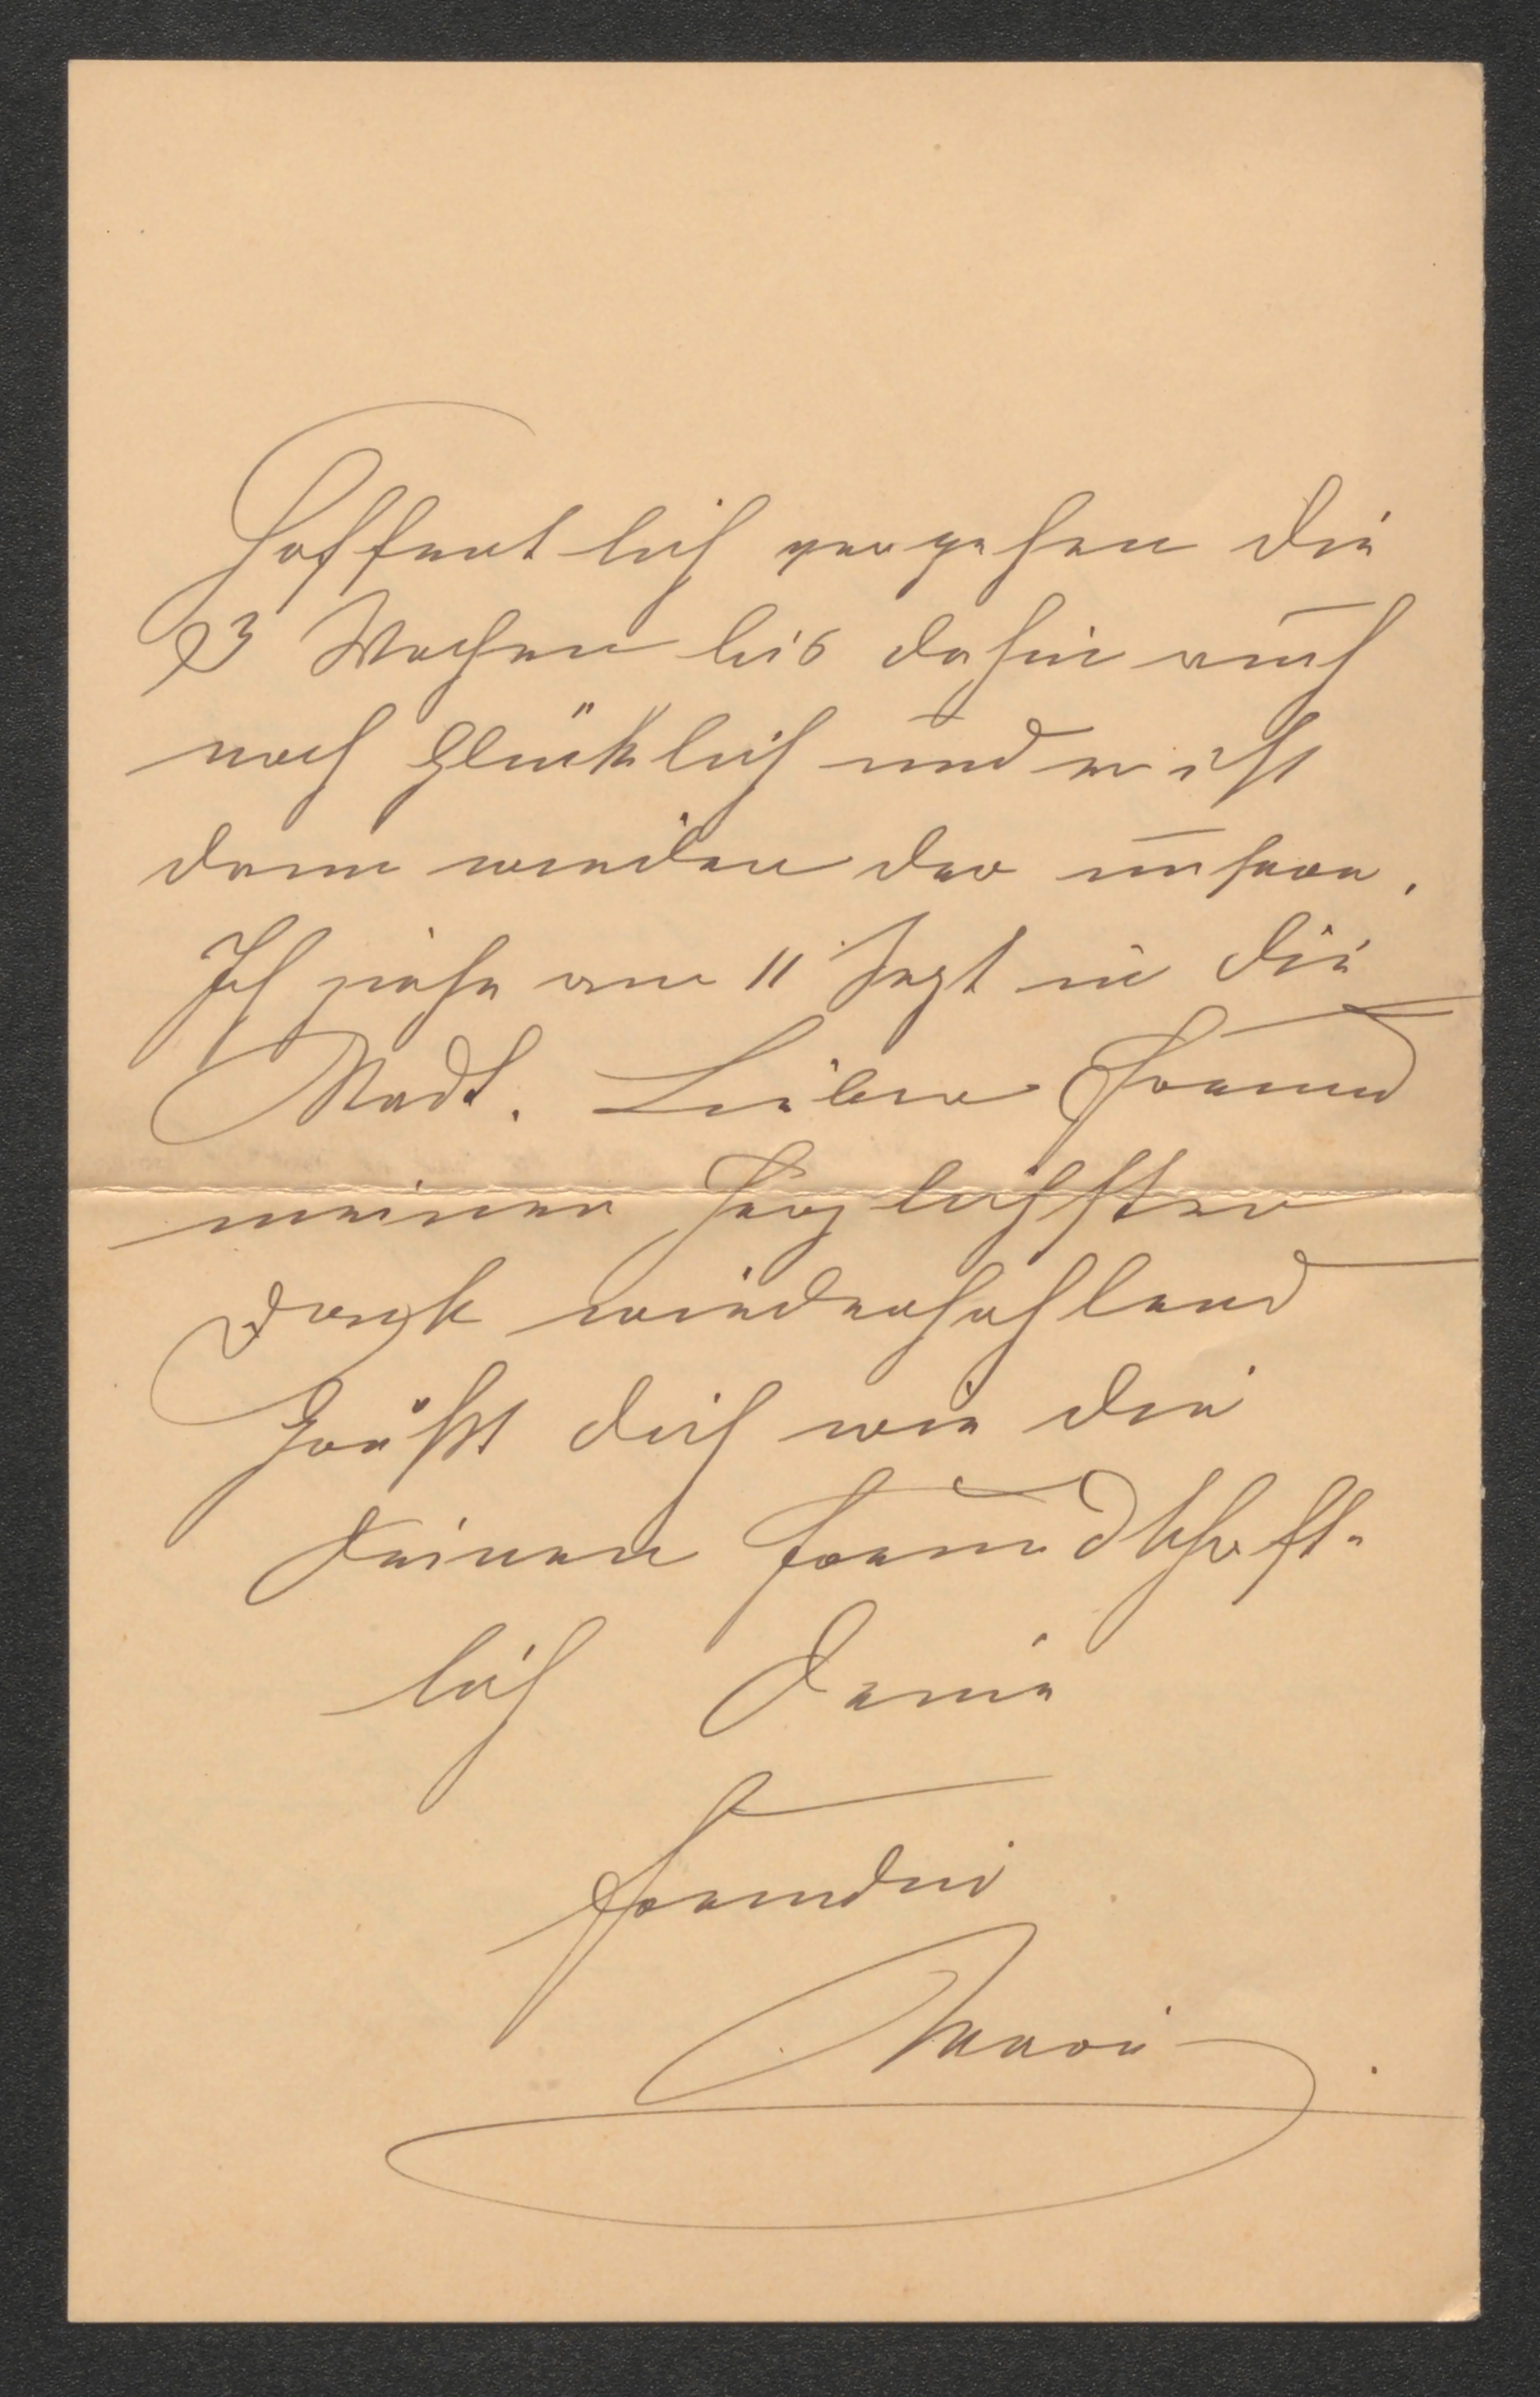 Hoffentlich vergehen die
3 Wochen bis dahin auch
noch glücklich und er ist
dann wieder der unsere.
Ich ziehe am 11 Sept in die
Stadt. Lieber Freund
meinen herzlichsten
Dank wiederhohlend
grüßt dich wie die
deinen freundschaft-
lich Deine
Freundin
Marie